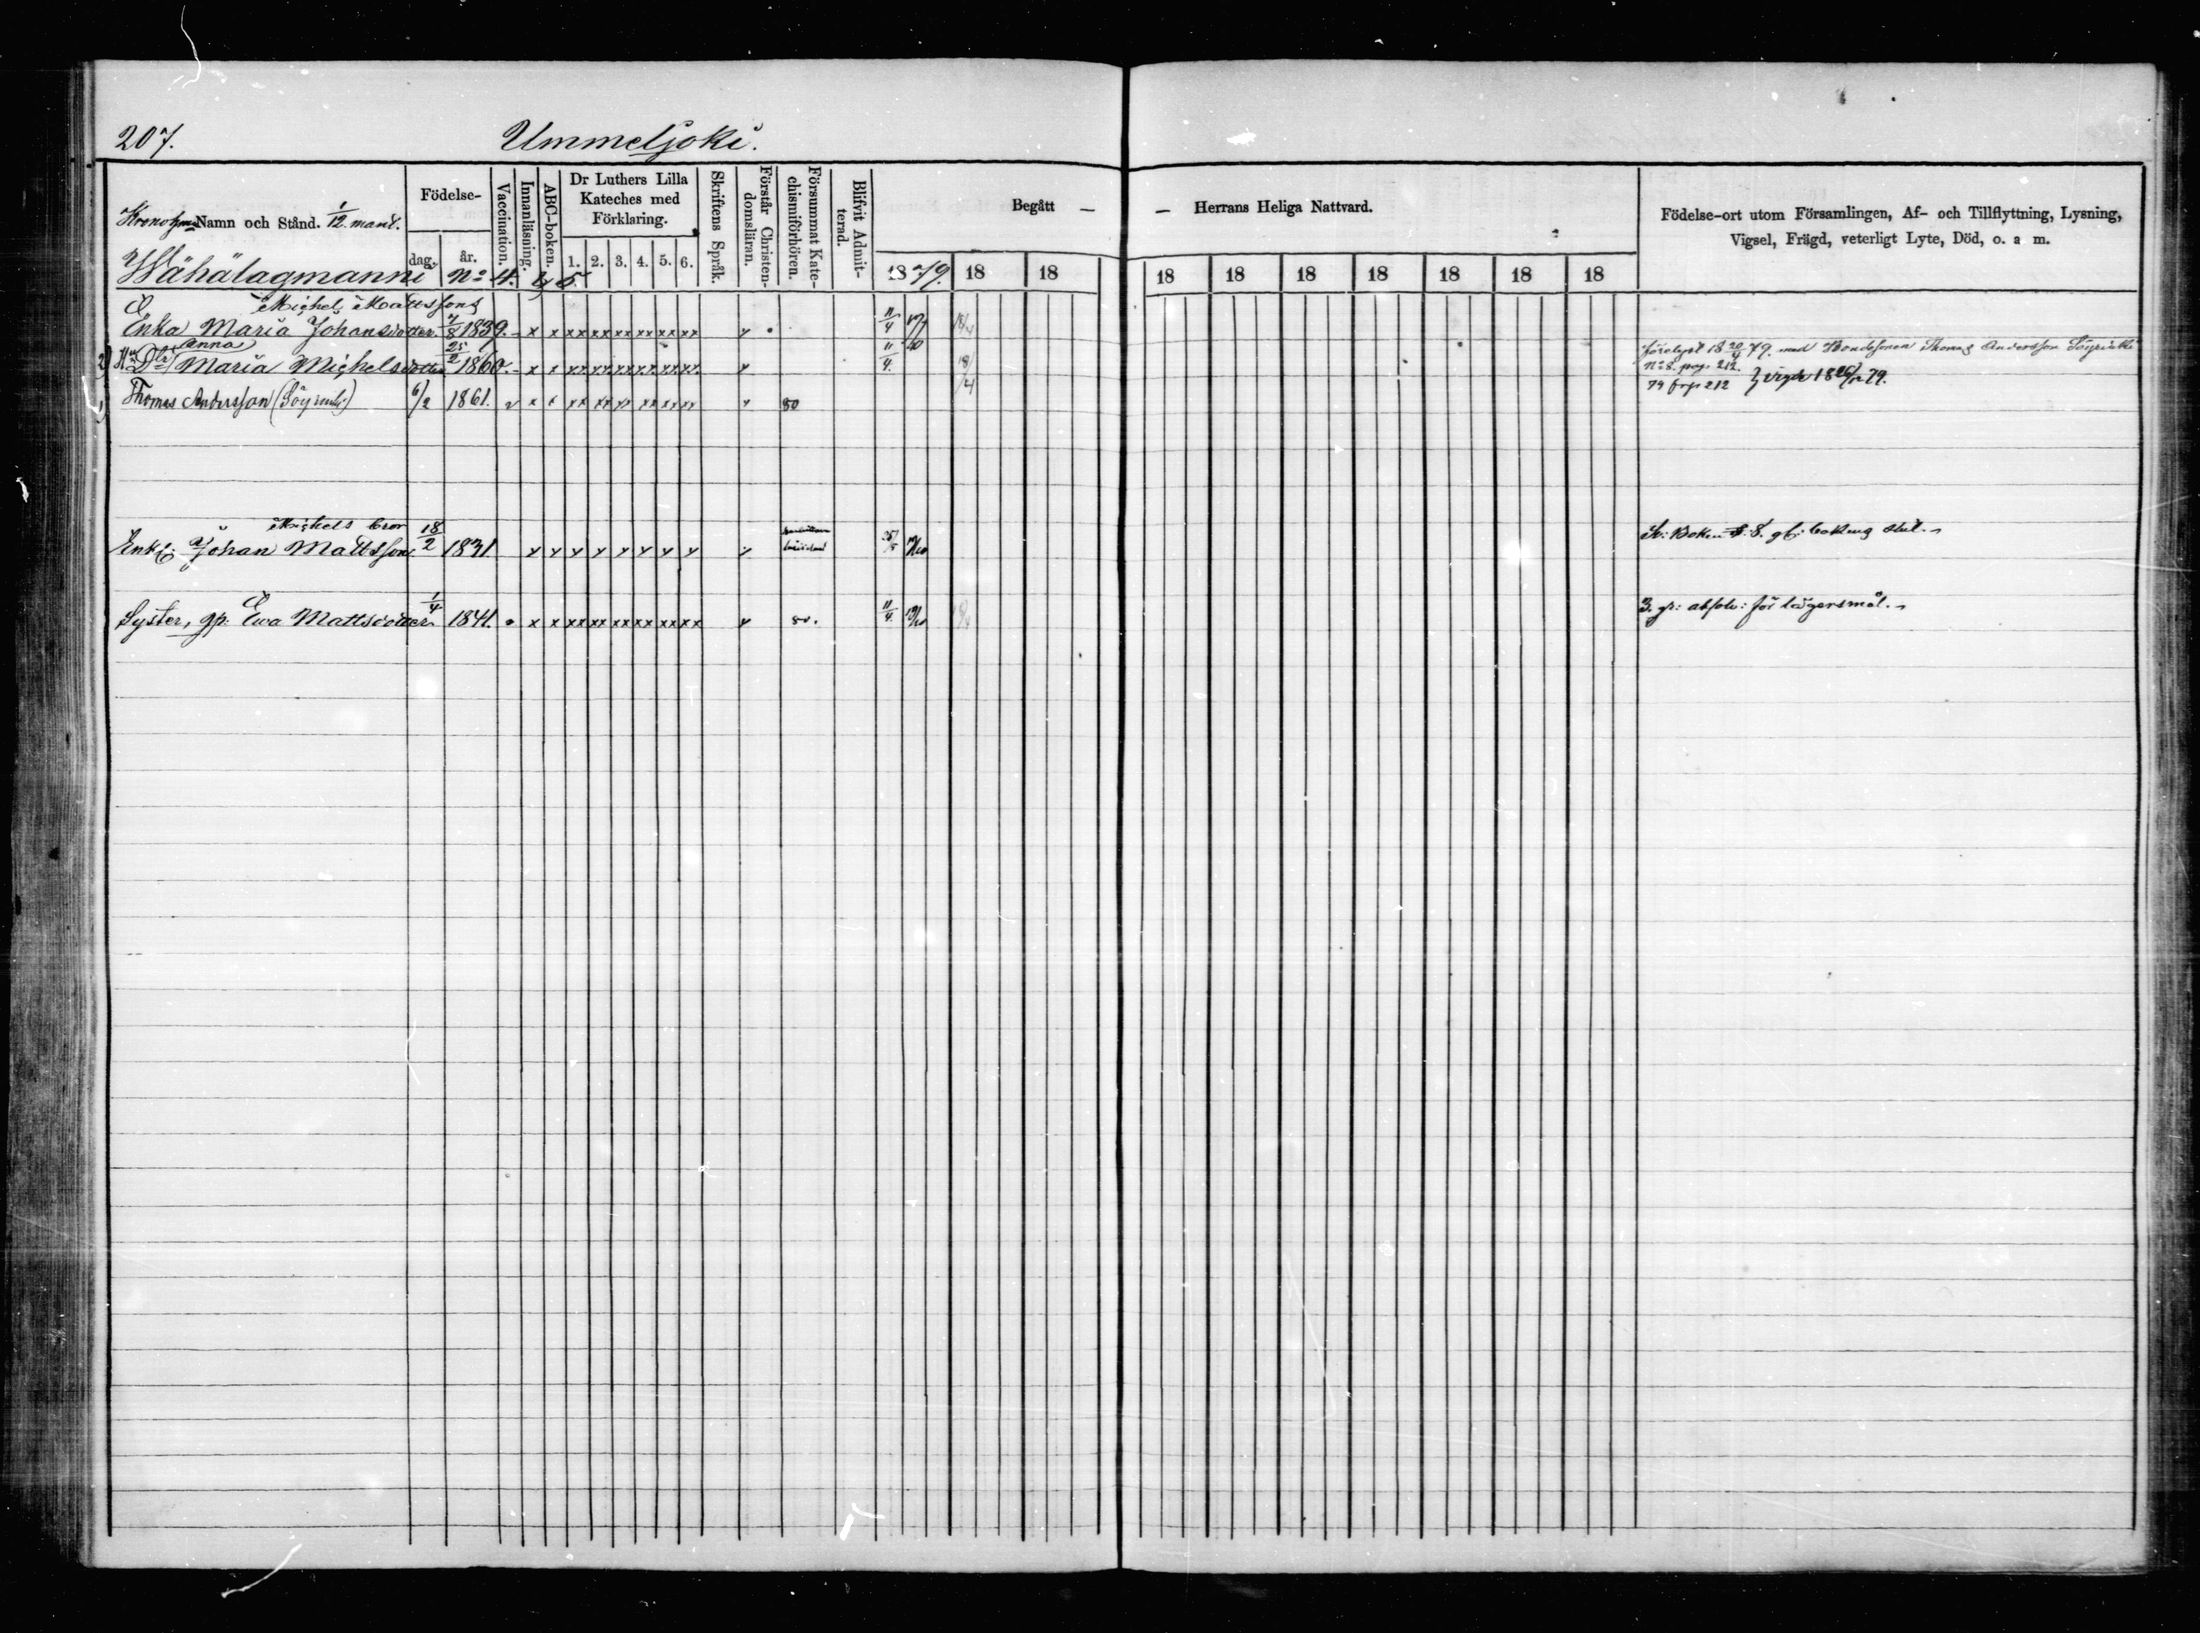 207.
Ummeljoki.
Namn och Stånd. 1/12 mant.
Födelse-
dag. år.
Vaccination.
Innanläsning.
ABC-boken.
Dr Luthers Lilla
Kateches med
Förklaring.
1. 2. 3. 4. 5. 6.
Skriftens Språk.
Förstår Christen-
domsläran.
Försummat Kate-
chismiförhören.
Blifvit Admit-
terad.
Begått — — Herrans Heliga Nattvard.
1879. 18 18 18 18 18 18 18 18 18
Födelse-ort utom Församlingen, Af- och Tillflyttning, Lysning,
Vigsel, Frägd, veterligt Lyte, Död, o. a m.
Wähälagmanni No 4. & 5.
Michel Mattssons
Enka Maria Johansdotter. 7/8 1839. – x x xx xx xx xx xx xx x 11/4
Anna
2) Dtr Maria Michelsdotter 25/2 1860. – x x xx xx xx xx xx xx x 11/4. 18/4 förelyst 18 20/4 79. med Bondesonen Thomas Andersson
No 8. pag. 212.
1) Thomas Andersson 6/2 1861. v x x xx xx xx xx xx xx x 80 79 frp 212 } vigde 18 79.
Michels bror
Enkl: Johan Mattsson 18/2 1831 x x x x x x x x x 25/5 Boken
Syster, gp: Ewa Mattsdotter 1/4 1841. x x xx xx xx xx xx xx x 80. 11/4 3. gr: absolv: för lägersmål.